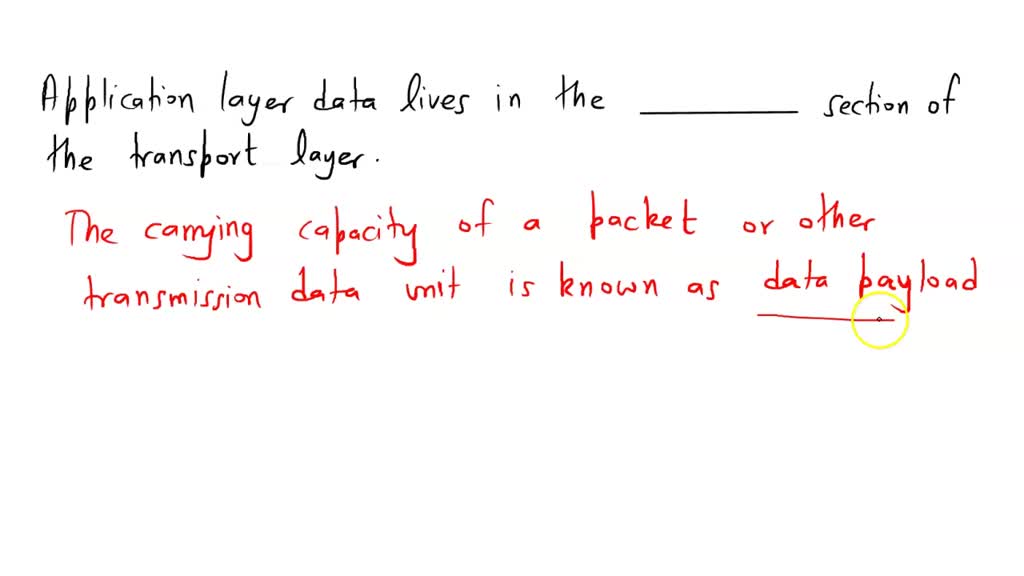 Application layer data lives in the ________ section of
the transport layer.
The carrying capacity of a packet or other
transmission data unit is known as data payload